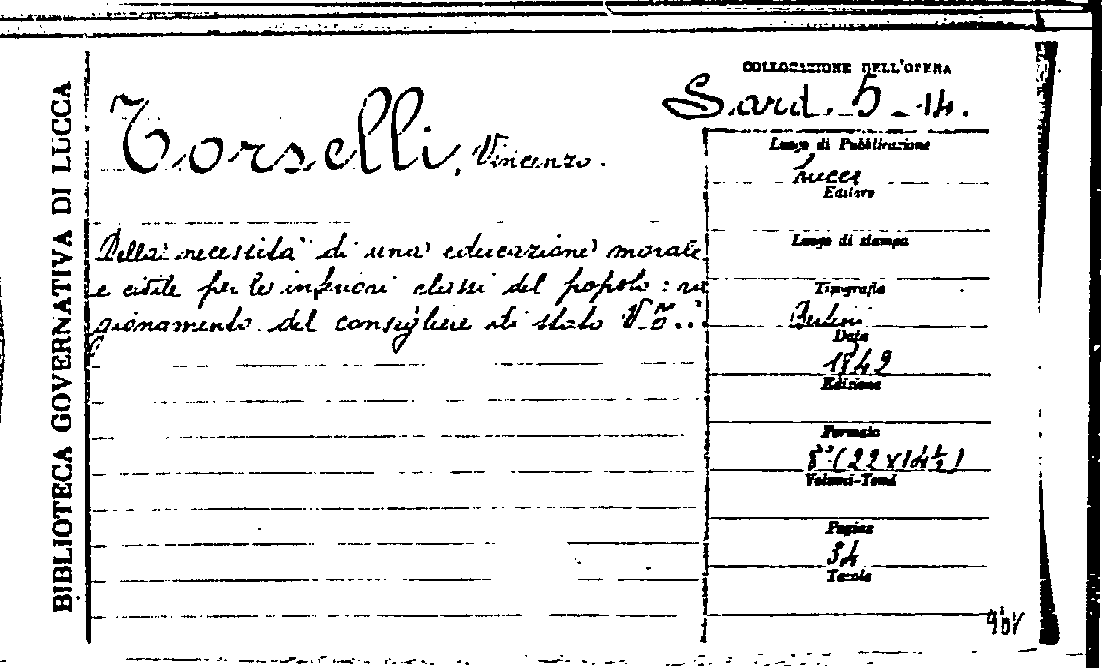 BIBLIOTECA GOVERNATIVA DI LUCCA
COLLOCAZIONE DELL'OPERA
Sard. 5-14.
Torselli, Vincenzo.
Della necessità di una educazione morale
e civile per le inferiori classi del popolo: ra
gionamento del consigliere di stato V. T..
Luogo di Pubblicazione
Lucca
Editore
Luogo di stampa
Tipografia
Bertini
Data
1849
Edizione
Formato
8° (22x14½)
Volumi-Tomi
Pagine
34
Tavole